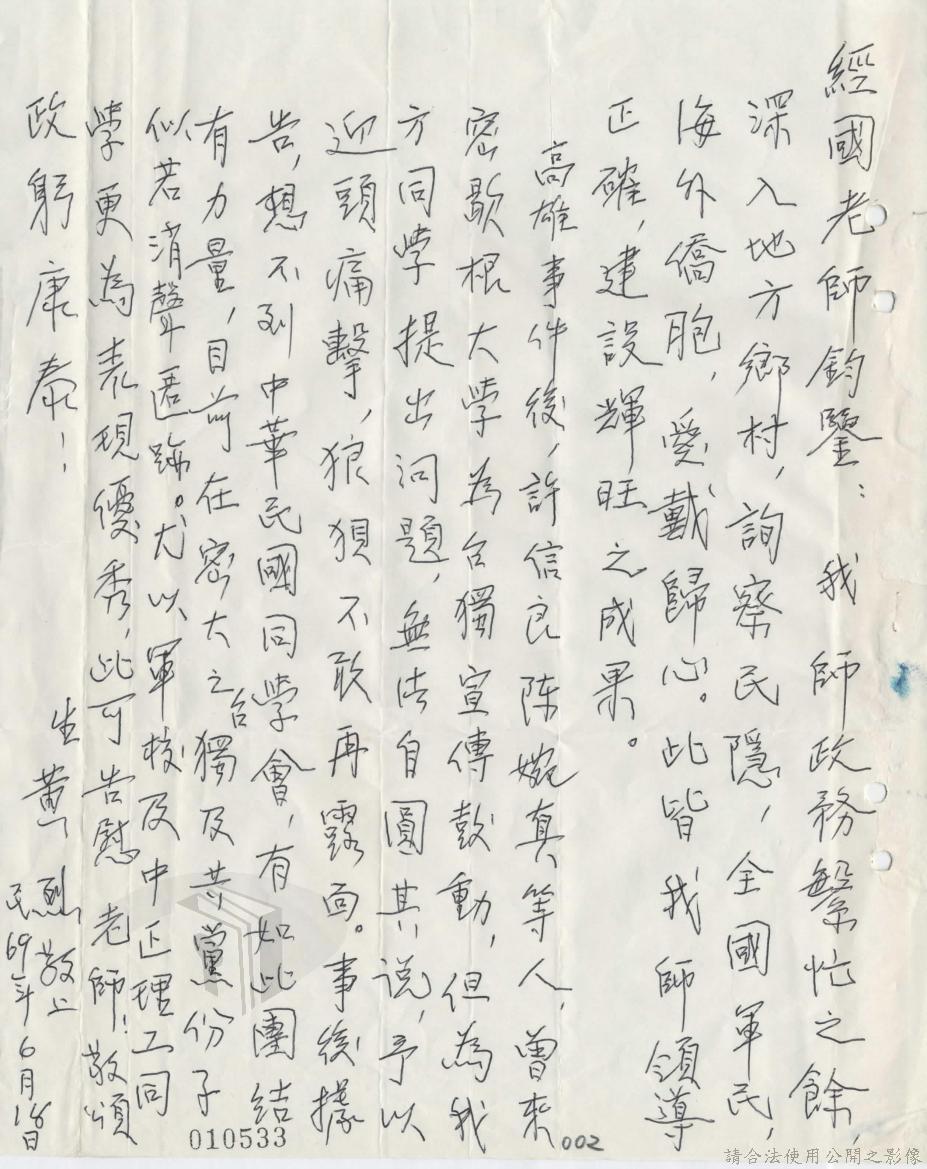 經國老師鈞鑒：我 師政務繁忙之餘，
深入地方鄉村，詢察民隱，全國軍民，
海外僑胞，愛戴歸心。此皆我師領導
正確，建設輝旺之成果。
高雄事件後，許信良陈婉真等人，曾來
密歇根大學為台獨宣傳鼓動，但為我
方同學提出问題，無法自圓其说，予以
迎頭痛擊，狼狽不敢再露面。事後據
告，想不到中華民國同學會，有如此團結
有力量，目前在密大之台獨及共黨份子
似若消聲匿跡。尤以軍校及中正理工同
學更為表現優秀，此可告慰老師！敬頌
政躬康泰！
生 黄烈敬上
民69年6月18日
010533
002
請合法使用公開之影像